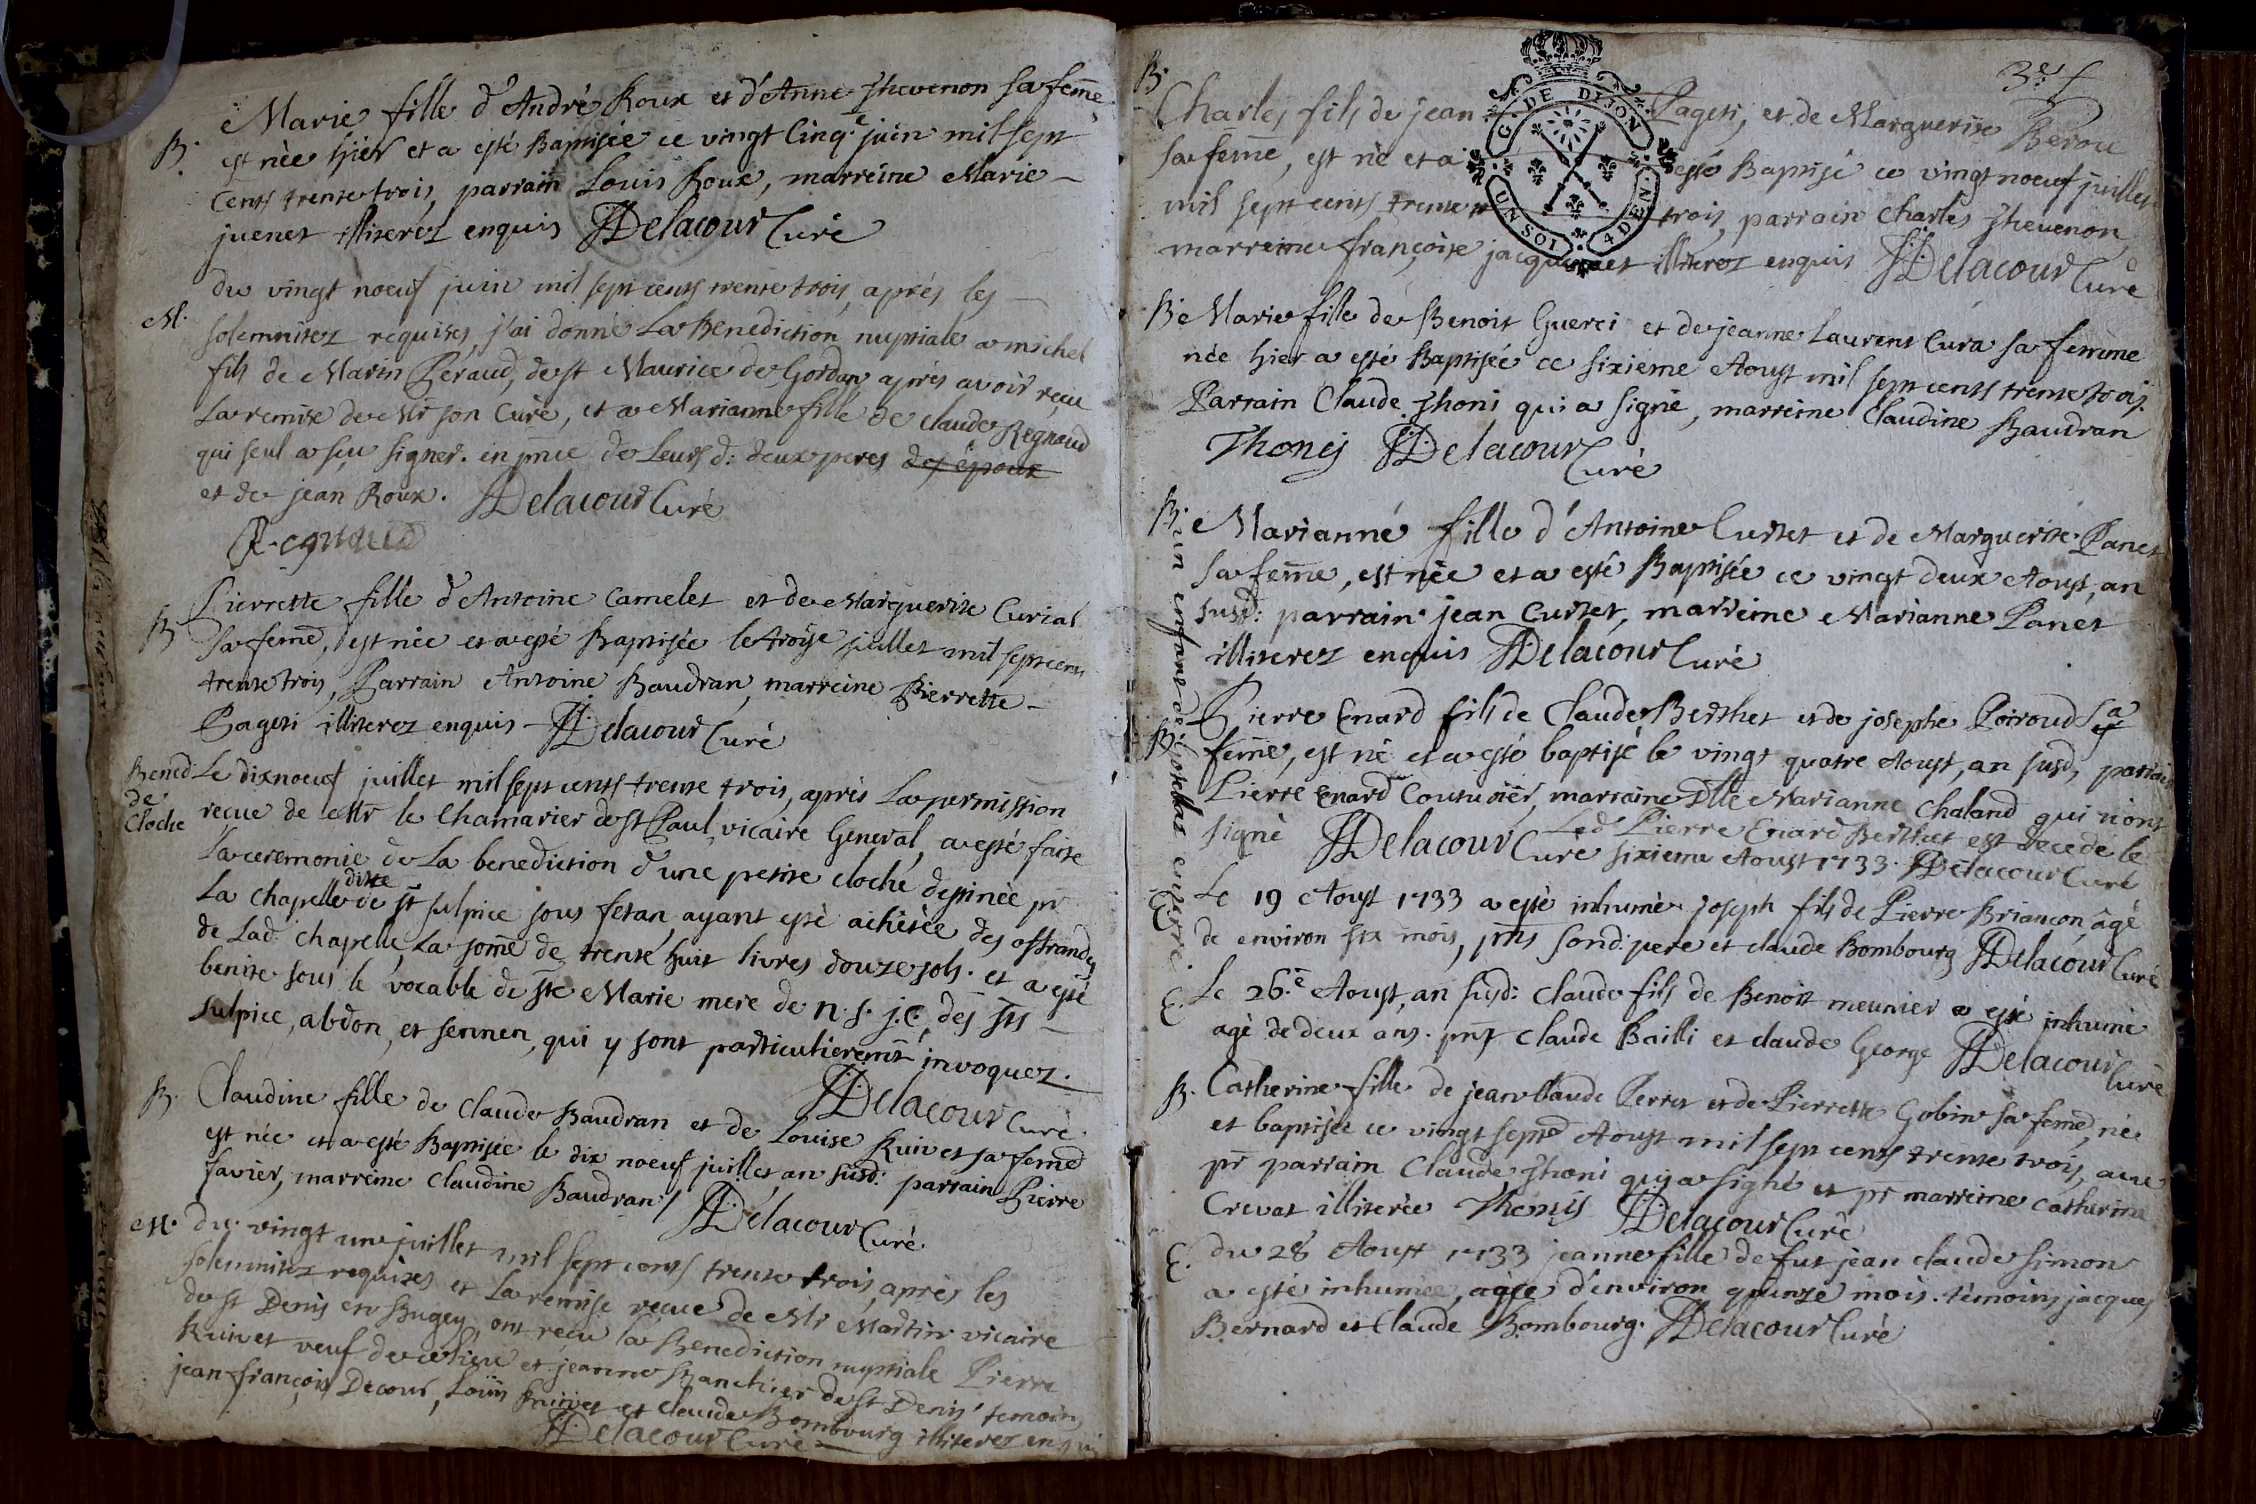 Marie fille d'André Roux et d'Anne Thevenon sa feme
B. est née hier et a esté Baptisée ce vingt Cinq.e juin mil sept
Cents trente trois, parrain Louis Roux, marreine Marie
juenet illiterez enquis Delacour Curé
du vingt noeuf juin mil sept cents trente trois, aprés les
M. solemnitez requises, j'ai donné La Benediction nuptiale a michel
fils de Marin Peraud, de st Maurice de Gordan, aprés avoir reçu
La remise de Mr son Curé, et a Marianne fille de claude Regnaud
qui seul a sçu signer. en pnce de Leurs d: deux peres des époux
et de jean Roux. Delacour Curé
Regnaud
Pierrette fille d'Antoine Camelet et de Marguerite Curial
B sa feme, est née et a esté Baptisée le troise juillet mil sept cens
trente trois, Parrain Antoine Baudran, marreine Pierrette
Pageti illiterez enquis Delacour Curé
Bened. de Cloche
Le dixnoeuf juillet mil sept cents trente trois, aprés La permission
reçue de Mr le Chamarier de st Paul, vicaire General, a esté faite
La ceremonie de La benediction d'une petite cloche destinée pr
La chapelle ditte de st sulpice sous fetan, ayant esté achetée des offrandes
de Lad: chapelle, La some de trente huit livres douze sols. et a esté
benite sous le vocable de ste Marie mere de n. s. j. c, des sts
sulpice, abdon, et sennen, qui y sont particulieremt invoquez.
Delacour Curé
B. Claudine fille de Claude Baudran et de Louise Ruivet sa feme
est née et a esté Baptisée le dix noeuf juillet, an susd: parrain Pierre
favier, marreine Claudine Baudran / Delacour Curé.
M. du vingt un juillet mil sept cents trente trois, aprés les
solemnitez requises et La remise reçue de Mr Martin vicaire
de st Denis en Bugey, ont reçu la Benediction nuptiale Pierre
Ruivet veuf de ce lieu et jeanne de st Denis, temoins
jean françois Decour, Louis Ruivet et Claude Bombourg illiterez enquis
Delacour Curé
3.e f
G. DE DIJON
UN SOL 4 DEN
B. Charles fils de jean Pageti, et de Marguerite Berou
sa feme, est né et a esté Baptisé ce vingt noeuf juillet
mil sept cents trente trois, parrain Charles Thevenon,
marreine françoise illiterez enquis Delacour Curé
B. Marie fille de Benoit Guerci et de jeanne Laurent Cura sa femme
née hier a esté Baptisée ce sixieme Aoust mil sept cents trente trois.
Parrain Claude Thoni qui a signé, marreine Claudine Baudran
Thonis Delacour Curé
B. Marianne fille d'Antoine Curtet et de Marguerite Panet
sa feme, est née et a esté Baptisée ce vingt deux Aoust, an
susd: parrain jean Curtet, marreine Marianne Panet
illiterez enquis Delacour Curé
un enfant de enterré.
B. Pierre Enard fils de Claude Berthet et de josephe Poiroud sa
feme, est né et a esté baptisé le vingt quatre Aoust, an susd, parrain
Pierre Enard Couturier, marraine Dlle Marianne Chaland qui n'ont
signé Delacour Curé Led Pierre Enard Berthet est decedé le
sixieme Aoust 1733. Delacour Curé
E. Le 19 Aoust 1733 a esté inhumé joseph fils de Pierre Briançon, âgé
de environ six mois, pnts sond: pere et claude Bombourg Delacour Curé
E. Le 26.e Aoust, an susd: Claude fils de Benoit meunier a esté inhumé
agé de deux ans. pnts Claude Bailli et claude George Delacour Curé
B. Catherine fille de jean Claude Perret et de Pierrette Gobin sa feme, née
et baptisée ce vingt sept Aoust mil sept cents trente trois, aue
pr parrain Claude Thoni qui a signé et pr marreine Catherine
Crevat illiterée Thonis Delacour Curé
E. du 28 Aoust 1733 jeanne fille de fut jean claude Simon
a esté inhumée, agée d'environ quinze mois. témoins jacques
Bernard et Claude Bombourg. Delacour Curé